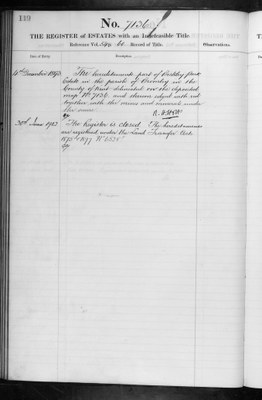 119
No. 7036
THE REGISTER of ESTATES with an Indefeasible Title.
Reference Vol. Fol. 60. Record of Title.
Observations.
Date of Entry.
Description
10th December 1890
The hereditaments part of
Estate in the parish of Bromley in the
County of Kent delineated on the deposited
map No. 7036. and thereon edged with red
together with the mines and minerals under
the same
30th June 1903
The Register is closed. The hereditaments
are registered under the Land Transfer Acts
1875 & 1897 No.